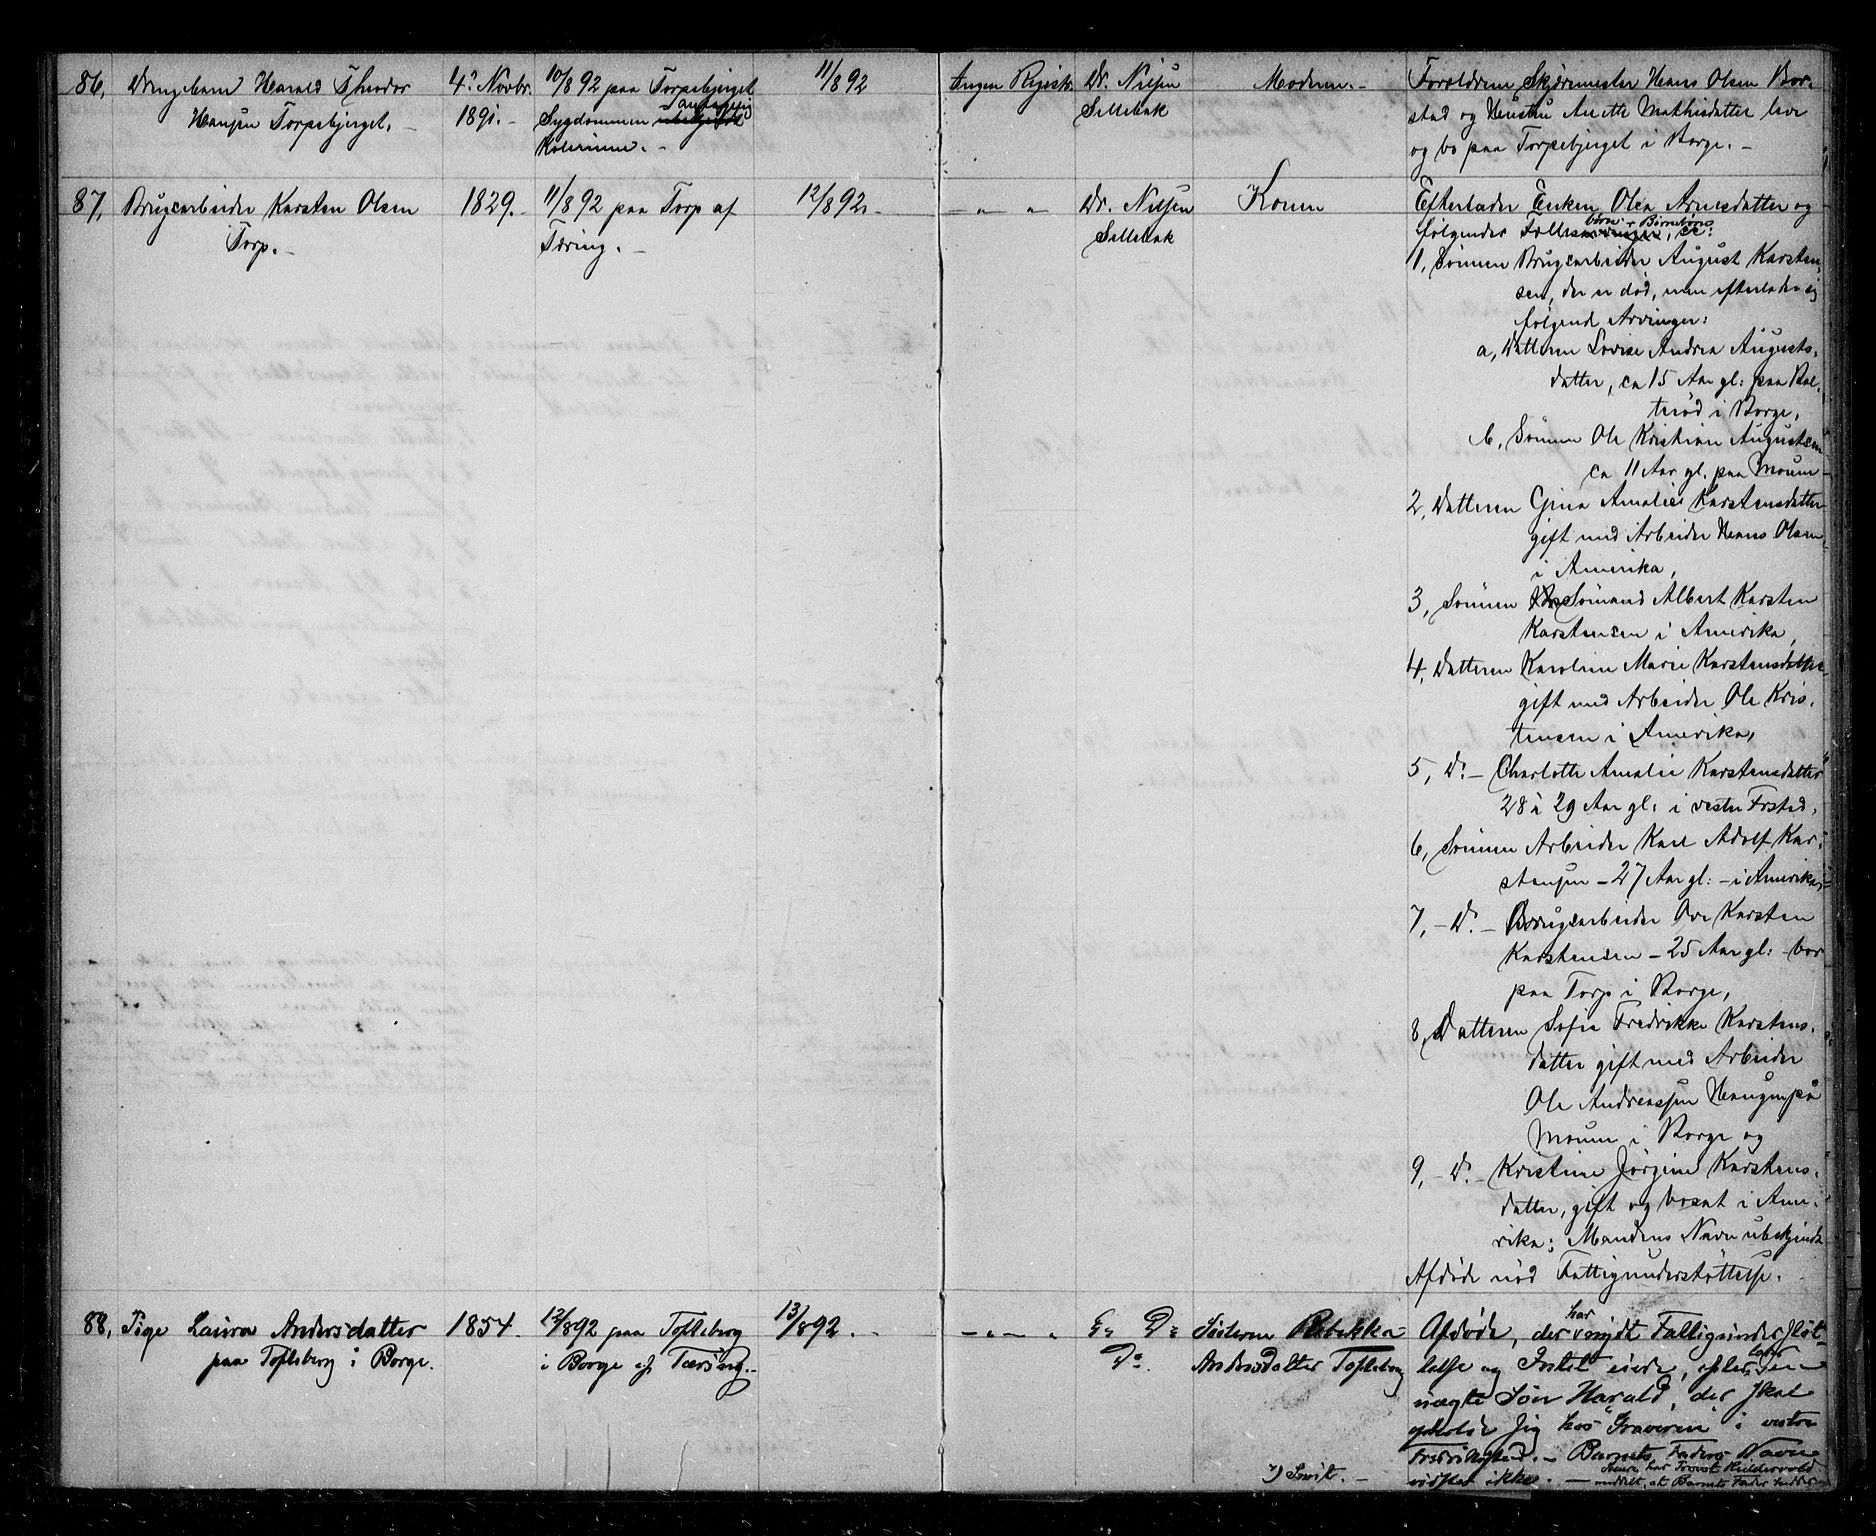 86, Drengebarn Harald Theodor
Hansen Torpebjerget. –
4de Novbr.
1891. –
10/8 92 paa Torpebjerget
Sygdommen antagelig
Kolerine. –
11/8 92
Ingen Registr.
Dr. Nilsen
Sellebak
Moderen. –
Forældrene Skjærmester Hans Olsen Bor-
stad og Hustru Anette Mathisdatter leve
og bo paa Torpebjerget i Borge. –
87, Brugsarbeider Karsten Olsen
Torp. –
1829. –
11/8 92 paa Torp af
Tæring. –
12/8 92. –
– „ – „
Dr. Nilsen
Sellebak
Konen
Efterlader Enken Olea Arnesdatter og
følgende Fælles børn + Børnebørn:
1, Sønnen Brugsarbeider August Karsten-
sen, der er død, men efterlader sig
følgende Arvinger:
a, Datteren Lovise Andrea Augusts-
datter, ca 15 Aar gl: paa
i Borge,
b, Sønnen Ole Kristian Augustsen
ca 11 Aar gl. paa Moum –
2, Datteren Gina Amalie Karstensdatter
gift med Arbeider Hans Olsen
i Amerika,
3, Sønnen Sømand Albert Karsten
Karstensen i Amerika,
4, Datteren Karoline Marie Karstensdatter
gift med Arbeider Ole Kris-
tensen i Amerika,
5, Do – Charlotte Amalie Karstensdatter
28 à 29 Aar gl: i vestre Frstad,
6, Sønnen Arbeider Karl Adolf Kar-
stensen – 27 Aar gl: – i Amerika,
7, – Do – Brugsarbeider Ove Karsten
Karstensen – 25 Aar gl: – bor
paa Torp i Borge,
8, Datteren Sofie Fredrikke Karstens-
datter gift med Arbeider
Ole Andreassen Haugen på
Moum i Borge og
9, – Do – Kristine Jørgine Karstens-
datter, gift og bosat i Ame-
rika; Mandens Navn ubekjendt
Afdøde nød Fattigunderstøttelse. –
88, Pige Laura Andersdatter
paa Tofteberg i Borge.
1854. –
12/8 92 paa Tofteberg
i Borge af Tæring. –
13/8 92. –
– „ – „
Do
Søsteren Rebekka
Andersdatter Tofteberg
Afdøde, der har nydt Fattigunderstøt-
telse og Intet eiede, efterlader en
uægte Søn Harald, der skal
opholde sig hos "Graveren" i vestre
Fredrikstad. – Barnets Faders Navn
vidstes ikke. –
Senere har Provst
meddelt, at Barnets Fader hedder
x) Smit. –